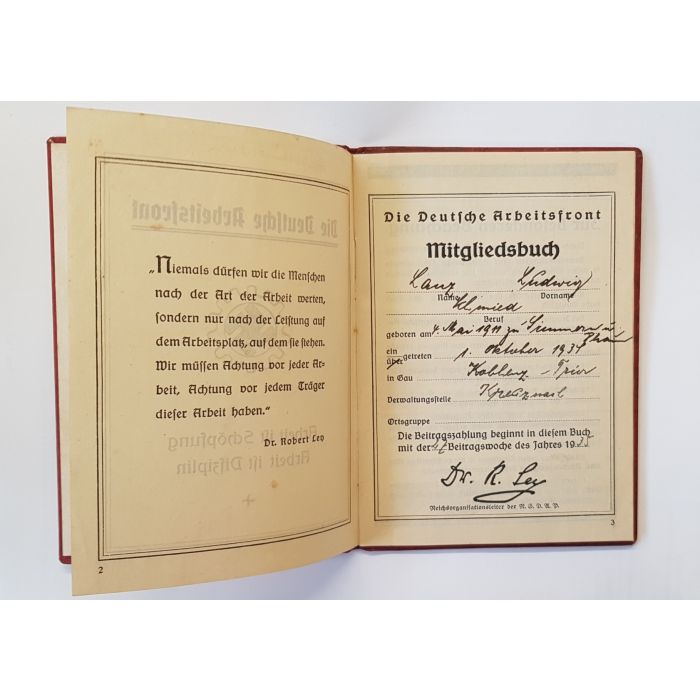 „Niemals dürfen wir die Menschen
nach der Art der Arbeit werten,
sondern nur nach der Leistung auf
dem Arbeitsplatz, auf dem sie stehen.
Wir müssen Achtung vor jeder Ar-
beit, Achtung vor jedem Träger
dieser Arbeit haben.“
Dr. Robert Ley
Die Deutsche Arbeitsfront
Arbeit ist Schöpfung
Arbeit ist Disziplin
2
Die Deutsche Arbeitsfront
Mitgliedsbuch
Lanz Ludwig
Name Vorname
Schmied
Beruf
geboren am 4. Mai 1911 zu
ein
über getreten 1. Oktober 1934
in Gau Koblenz-Trier
Verwaltungsstelle Kreuznach
Ortsgruppe
Die Beitragszahlung beginnt in diesem Buch
mit der Beitragswoche des Jahres 1935
Dr. R. Ley
Reichsorganisationsleiter der N.S.D.A.P.
3